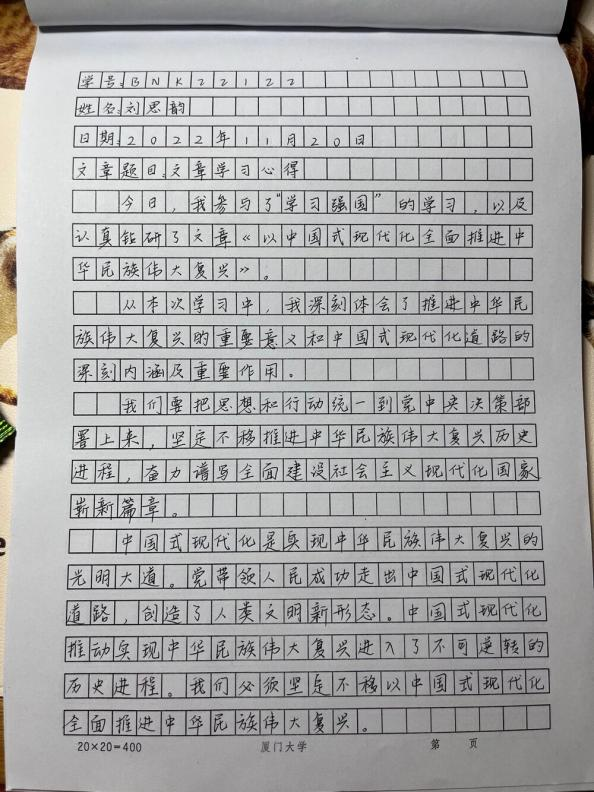 学号:BNK22122
姓名:刘思韵
日期:2022年11月20日
文章题目:文章学习心得
今日，我参与了“学习强国”的学习，以及
认真钻研了文章《以中国式现代化全面推进中
华民族伟大复兴》。
从本次学习中，我深刻体会了推进中华民
族伟大复兴的重要意义和中国式现代化道路的
深刻内涵及重要作用。
我们要把思想和行动统一到党中央决策部
署上来，坚定不移推进中华民族伟大复兴历史
进程，奋力谱写全面建设社会主义现代化国家
崭新篇章。
中国式现代化是实现中华民族伟大复兴的
光明大道。党带领人民成功走出中国式现代化
道路，创造了人类文明新形态。中国式现代化
推动实现中华民族伟大复兴进入了不可逆转的
历史进程。我们必须坚定不移以中国式现代化
全面推进中华民族伟大复兴。
20×20=400 厦门大学 第 页